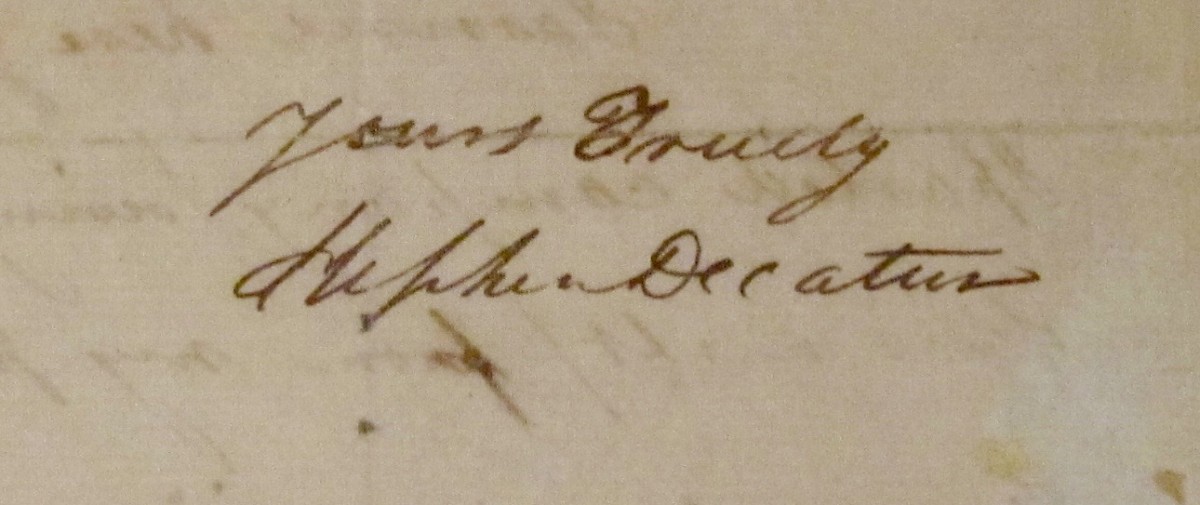 Yours Truely
Stephen Decatur